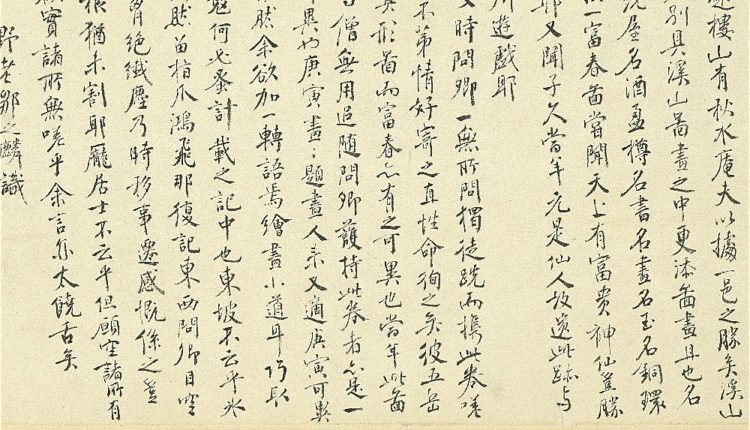 樓山有秋水庵夫以據一邑之勝矣溪山
別具溪山啚畫之中更添啚畫且也名
屋名酒盈樽名書名畫名玉名銅環
一富春啚嘗聞天上有富貴神仙豈勝
耶又聞子久當年元是仙人故遺此跡与
遊戲耶
時問卿一無所問獨徒跣而攜此卷嗟
不第情好寄之直性命徇之矣彼五岳
形啚而富春亦有之可異也當年此啚
僧無用追随問卿護持此卷者亦是一
異也庚寅畫〻題畫人来又適庚寅可異
然余欲加一轉語焉繪畫小道耳巧取
何必蚤計載之記中也東坡不云乎氷
然留指爪鴻飛那復記東西問卿目空
胷絕纖塵乃時移事遷感慨係之豈
根猶未割耶龐居士不云乎但願空諸所有
實諸所無嗟乎余言亦太饒舌矣
野老鄒之麟識